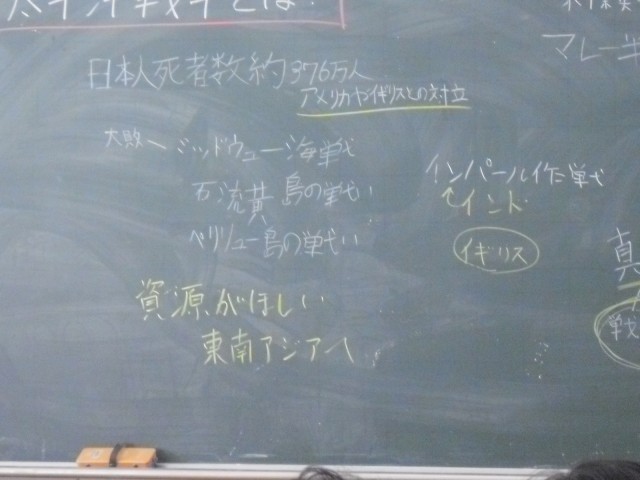 日本人死者数約376万人
アメリカやイギリスとの対立
大敗ーミッドウェー海戦
石流黄島の戦い
ペリリュー島の戦い
資源がほしい
東南アジアへ
インパール作戦
↑インド
イギリス
マレー半
真
戦